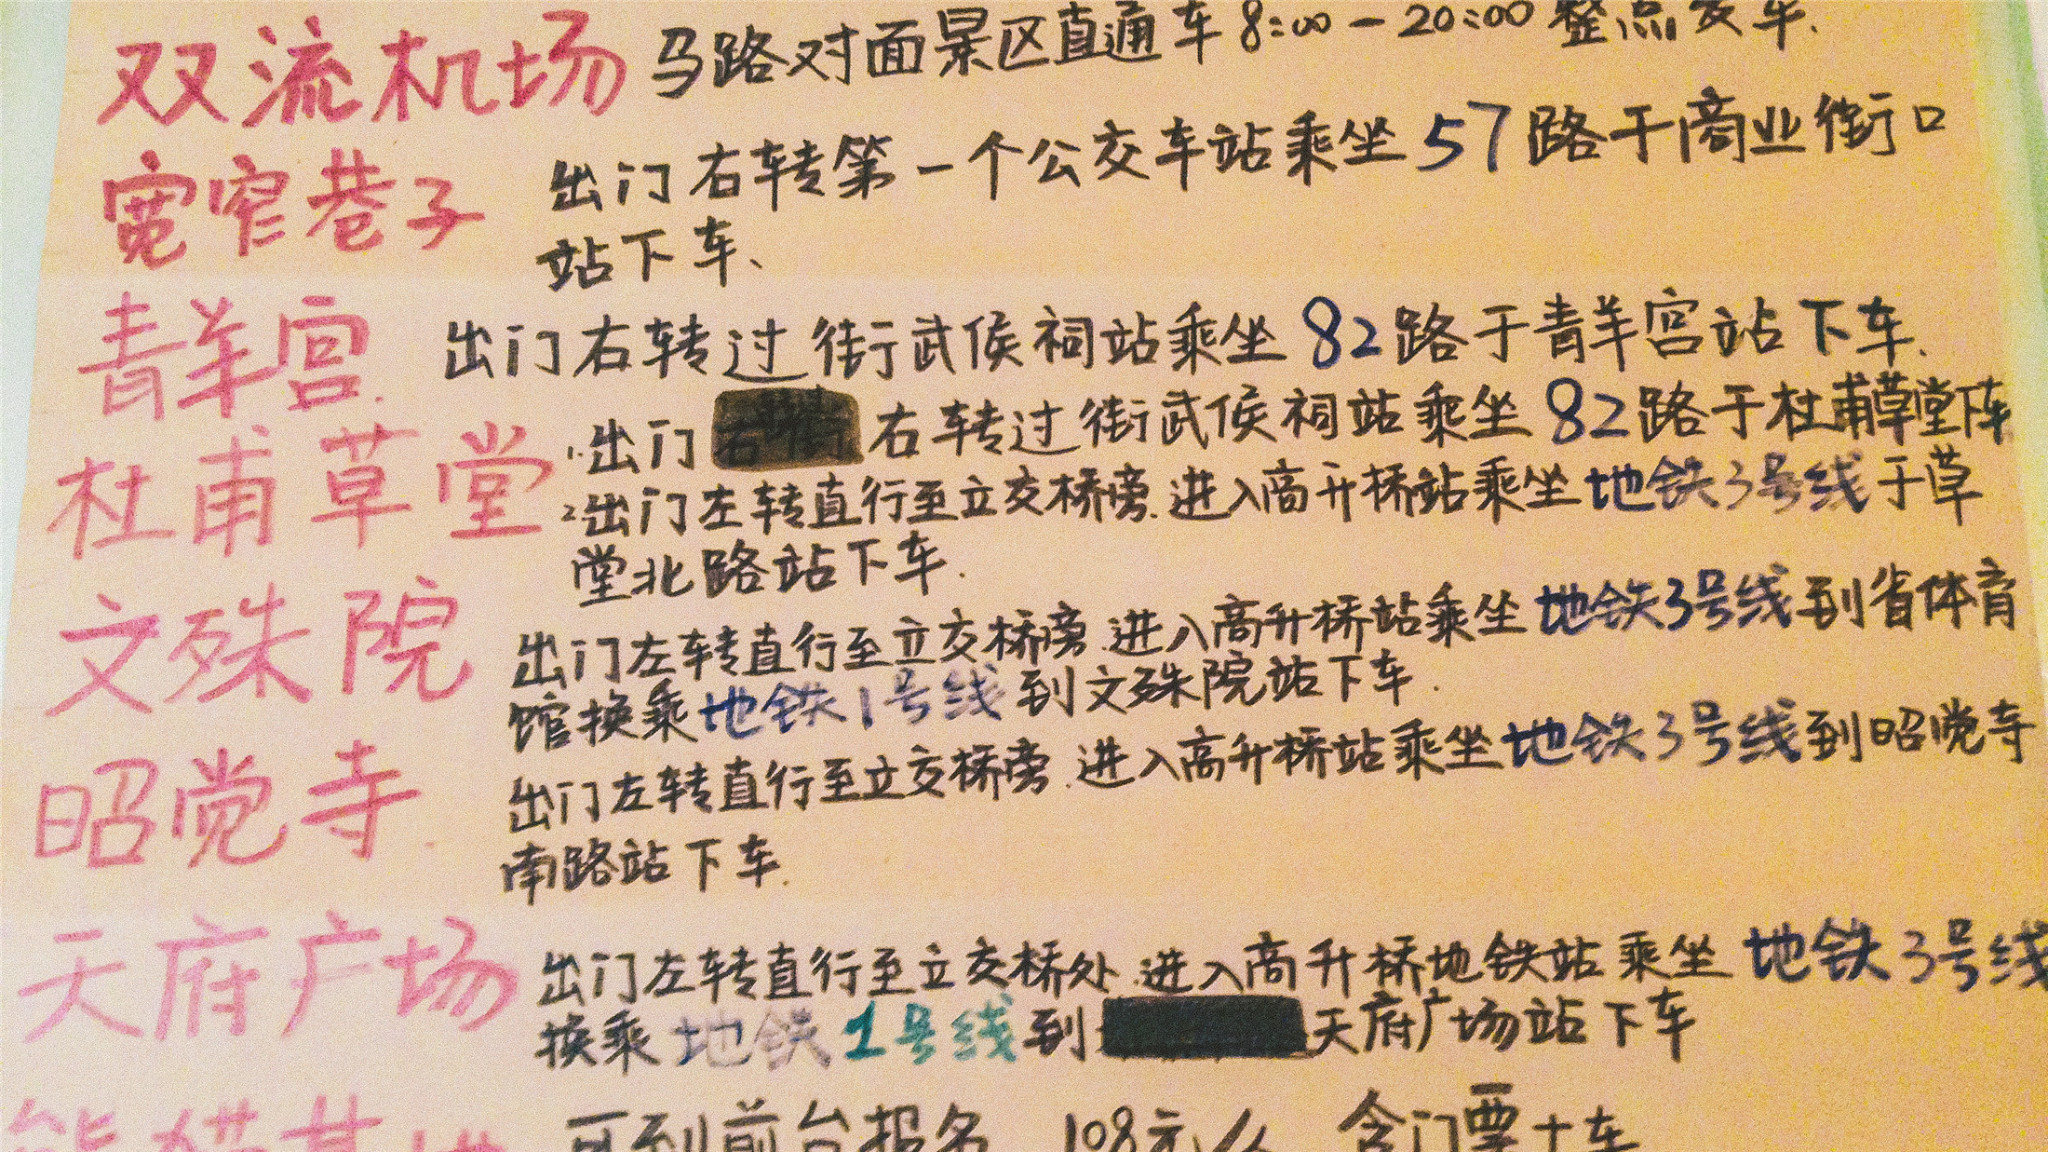 双流机场 马路对面景区直通车 8:00-20:00 整点发车.
宽窄巷子 出门右转第一个公交车站乘坐57路于商业街口
站下车、
青羊宫. 出门右转过街武侯祠站乘坐82路于青羊宫站下车.
杜甫草堂 1.出门 右转过街武侯祠站乘坐82路于杜甫草堂下车
2.出门左转直行至立交桥旁.进入高升桥站乘坐地铁3号线于草
堂北路站下车.
文殊院 出门左转直行至立交桥旁.进入高升桥站乘坐地铁3号线到省体育
馆换乘地铁1号线到文殊院站下车.
昭觉寺. 出门左转直行至立交桥旁.进入高升桥站乘坐地铁3号线到昭觉寺
南路站下车.
天府广场 出门左转直行至立交桥处.进入高升桥地铁站乘坐地铁3号线
换乘地铁1号线到 天府广场站下车
熊猫基地 可到前台报名 108元/人 含门票+车